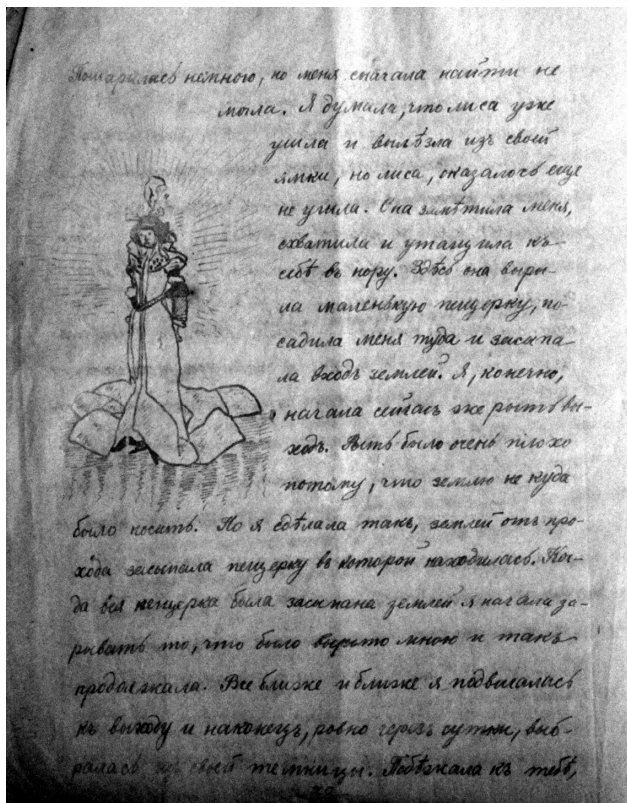 немного, но меня сначала найти не
могла. Я думала, что лиса уже
ушла и вылѣзла изъ своей
ямки, но лиса, оказалось еще
не ушла. Она замѣтила меня,
схватила и утащила къ
себѣ въ нору. Здѣсь она выры-
ла маленькую пещерку, по-
садила меня туда и засыпа-
ла входъ землей. Я, конечно,
начала сейчасъ же рыть вы-
ходъ. Рыть было очень плохо
потому, что землю не куда
было носить. Но я сдѣлала такъ, землей отъ про-
хода засыпала пещерку въ которой находилась. Ког-
да вся пещерка была засыпана землей я начала за-
рывать то, что было вырыто мною и такъ
продолжала. Все ближе и ближе я подвигалась
къ выходу и наконецъ, ровно черезъ сутки, выб-
ралась изъ своей темницы. Побѣжала къ тебѣ,